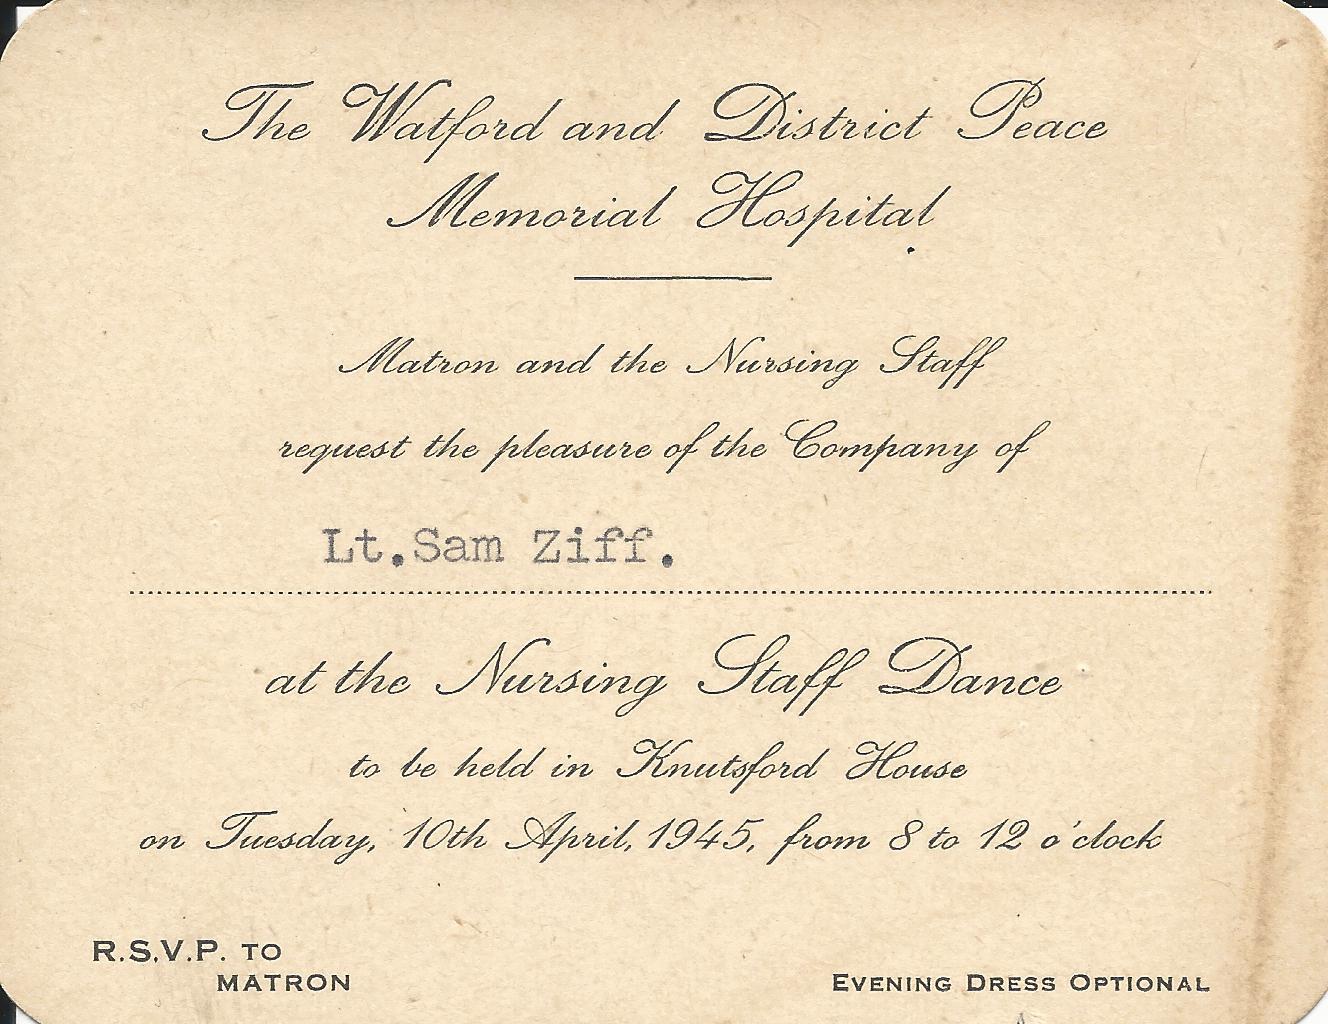 The Watford and District Peace
Memorial Hospital
Matron and the Nursing Staff
request the pleasure of the Company of
Lt.Sam Ziff.
at the Nursing Staff Dance
to be held in Knutsford House
on Tuesday, 10th April, 1945, from 8 to 12 o'clock
R.S.V.P. TO
MATRON
EVENING DRESS OPTIONAL